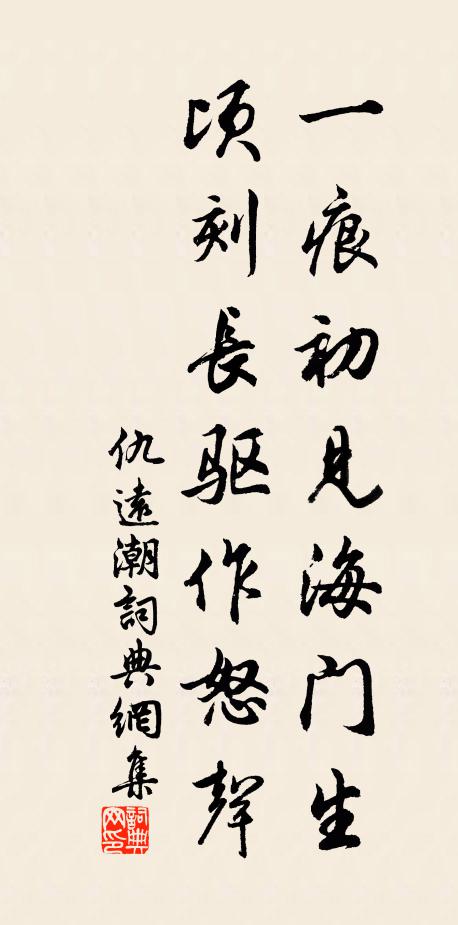 一痕初见海门生
顷刻長驱作怒聲
仇遠潮詞典網集
詞典网印